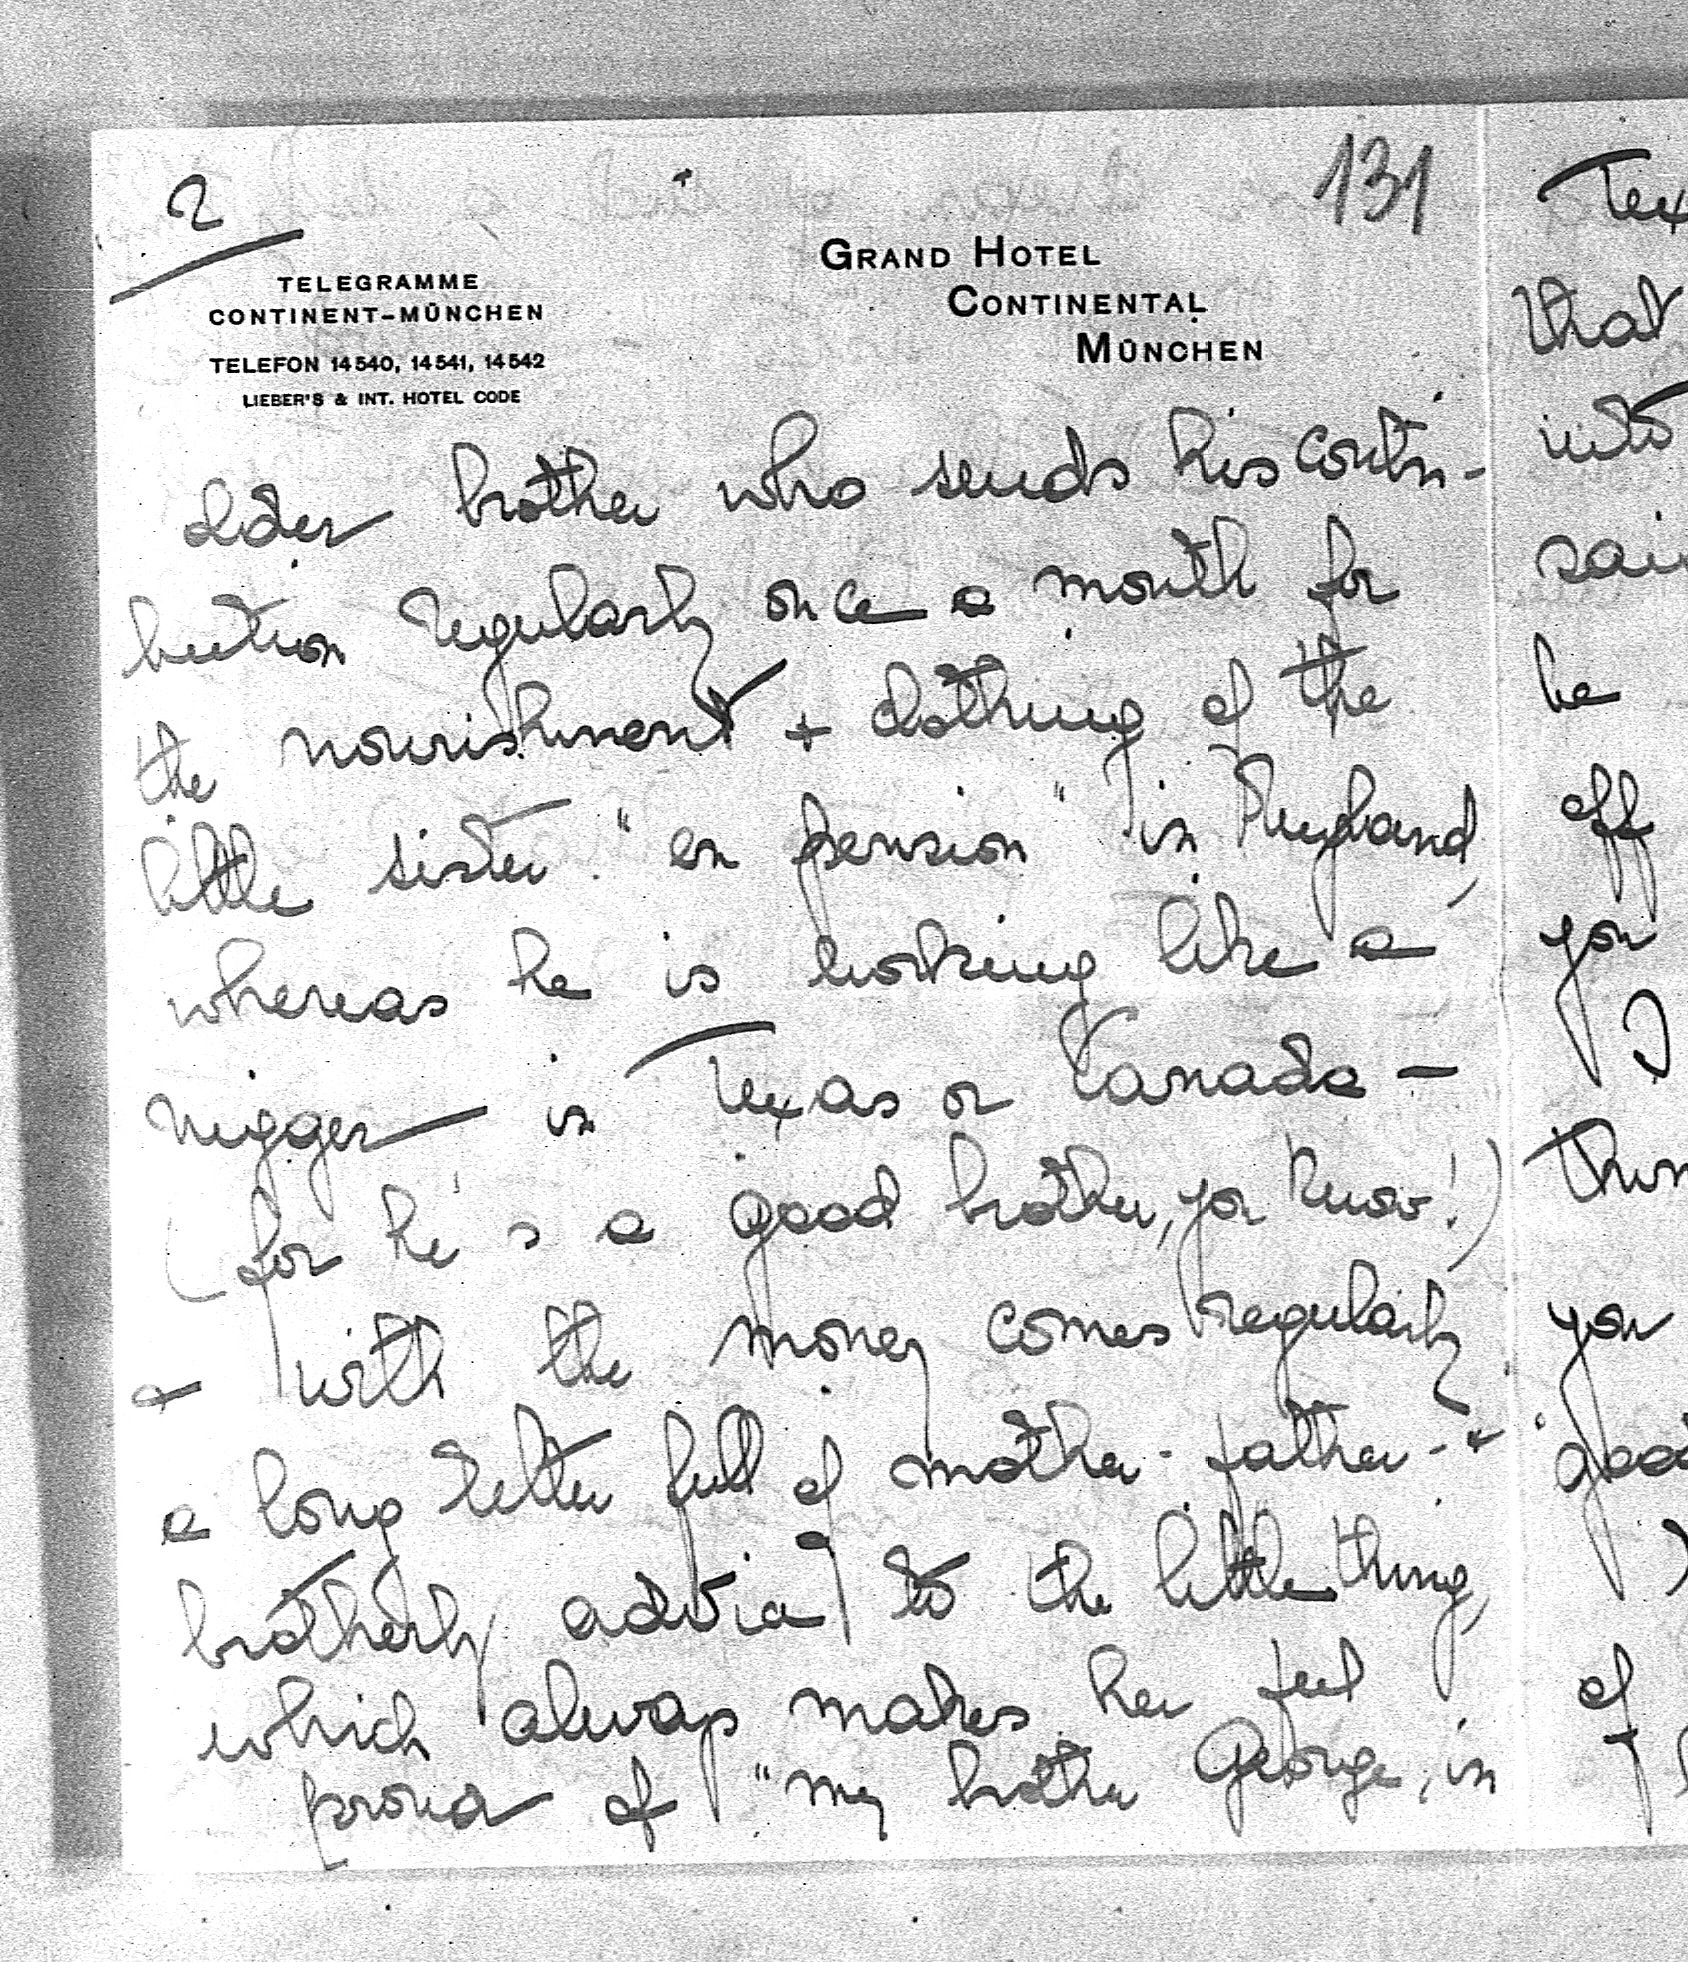 2
131
TELEGRAMME
CONTINENT-MÜNCHEN
TELEFON 14540, 14541, 14542
LIEBER'S & INT. HOTEL CODE
GRAND HOTEL
CONTINENTAL
MÜNCHEN
older brother who sends his contri-
bution regularly once a month for
the nourishment + clothing of the
little sister "en pension" in England,
whereas he is working like a
nigger in Texas or Kanada —
(for he's a good brother, you know!)
+ with the money comes regularly
a long letter full of mother- father- +
brotherly advice to the little thing,
which always makes her feel
proud of "my brother George, in
Tex
that
into
sai
be
off
you
I
you
good
of